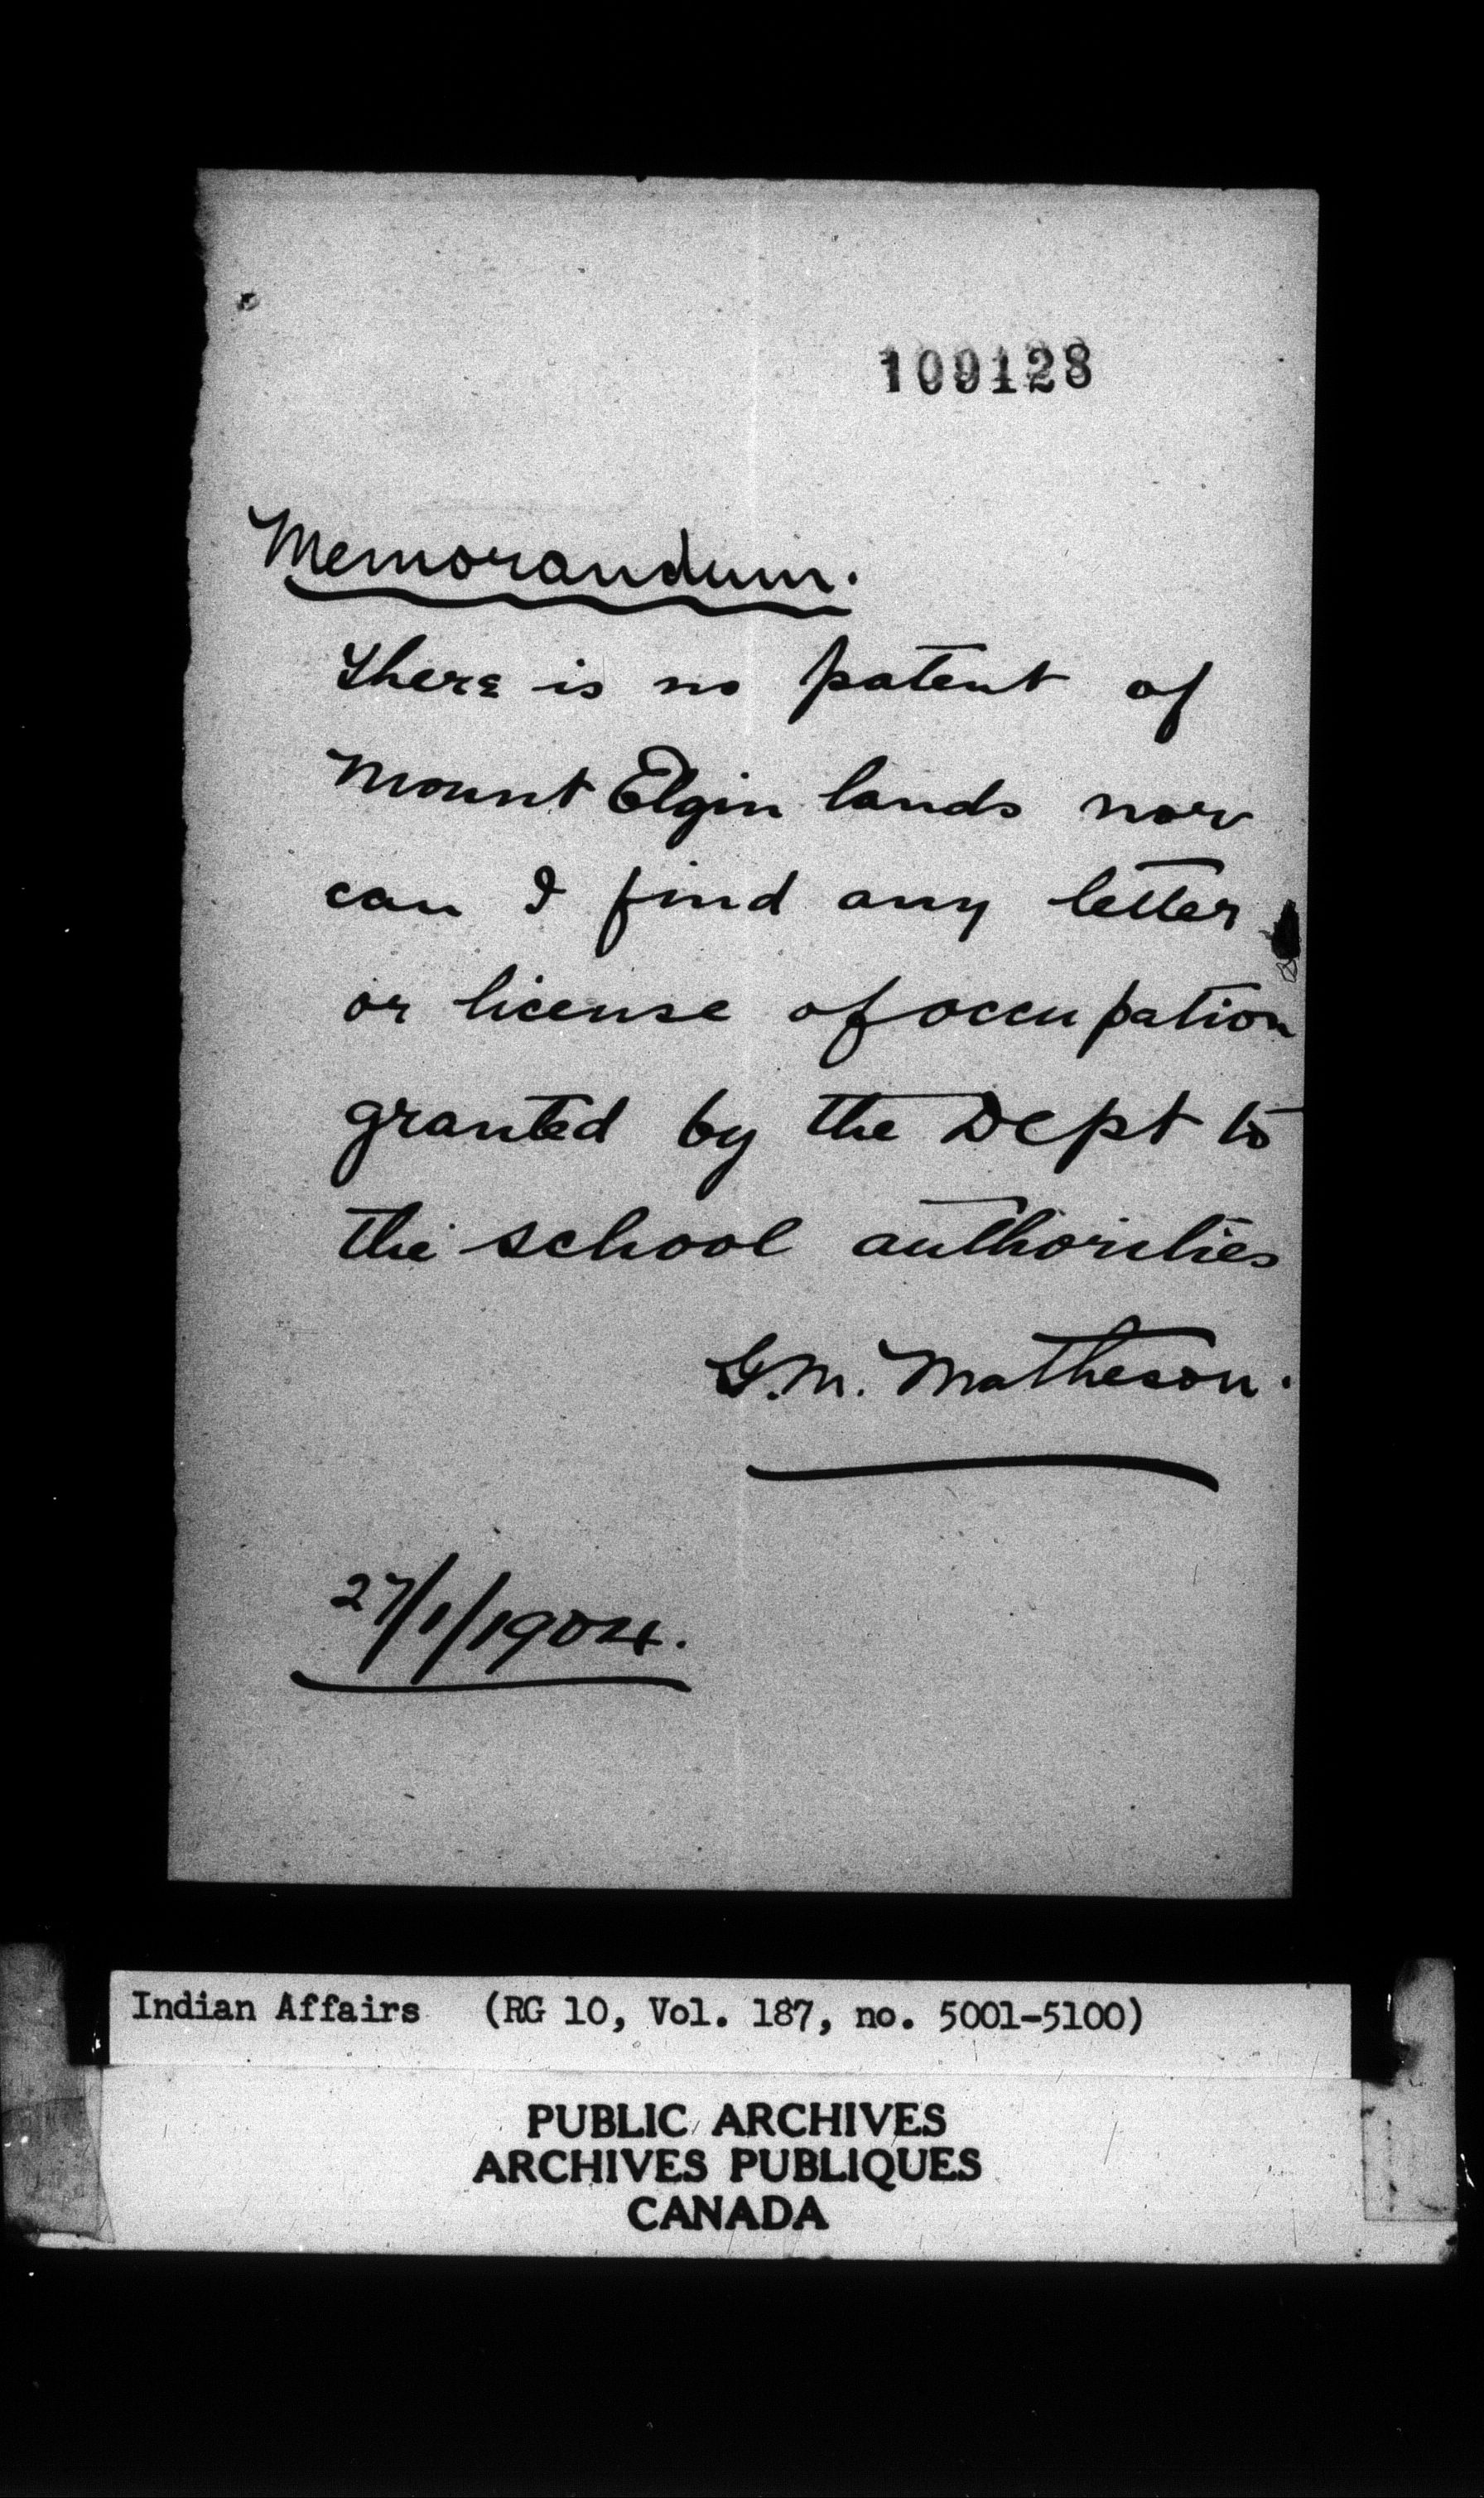 109128
Memorandum.
There is no patent of
Mount Elgin lands nor
can I find any letter
or license of occupation
granted by the Dept to
the school authorities
G.M. Matheson.
27/1/1904.
Indian Affairs (RG 10, Vol. 187, no. 5001-5100)
PUBLIC ARCHIVES
ARCHIVES PUBLIQUES
CANADA